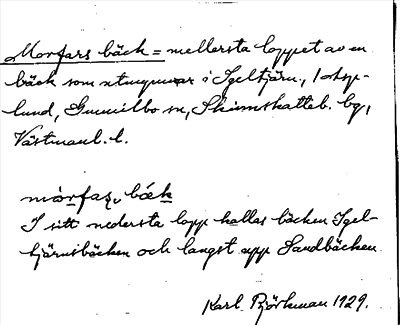 Morfars bäck = mellersta loppet av en
bäck som utmynnar i Igeltjärn, Asp-
lund, Gunnilbo sn, Skinnskatteb. bg,
Västmanl. l.
mórfaʂ bǽk
I sitt nedersta lopp kallas bäcken Igel-
tjärnsbäcken och längst upp Sandbäcken
Karl Björkman 1929.